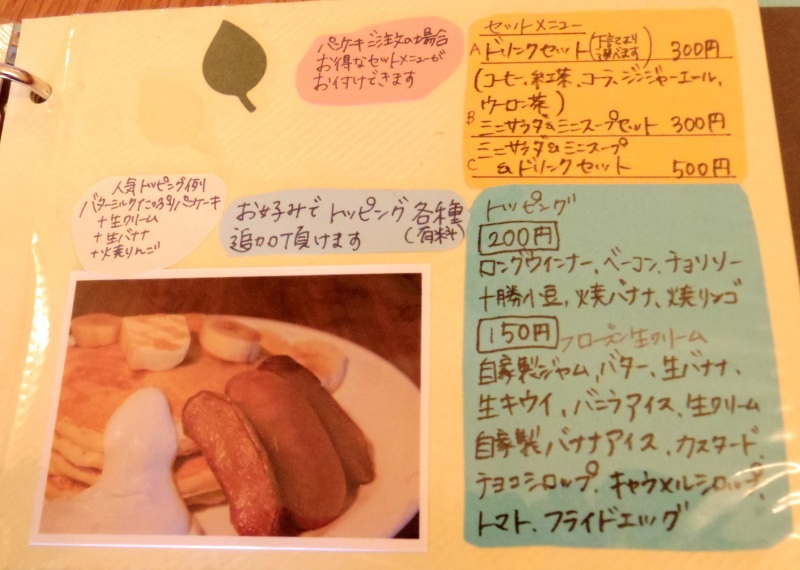 パンケーキご注文の場合
お得なセットメニューが
お付けできます
セットメニュー
A ドリンクセット(下記より選べます) 300円
(コーヒー、紅茶、コーラ、ジンジャーエール、
ウーロン茶)
B ミニサラダ&ミニスープセット 300円
ミニサラダ&ミニスープ
C &ドリンクセット 500円
人気トッピング例
バターミルクたっぷりパンケーキ
+生クリーム
+生バナナ
+火焼りんご
お好みでトッピング各種
追加頂けます (有料)
トッピング
200円
ロングウインナー、ベーコン、チョリソー
十勝小豆、焼バナナ、焼リンゴ
150円 フローズン生クリーム
自家製ジャム、バター、生バナナ、
生キウイ、バニラアイス、生クリーム
自家製バナナアイス、カスタード、
チョコシロップ、キャラメルシロップ、
トマト、フライドエッグ